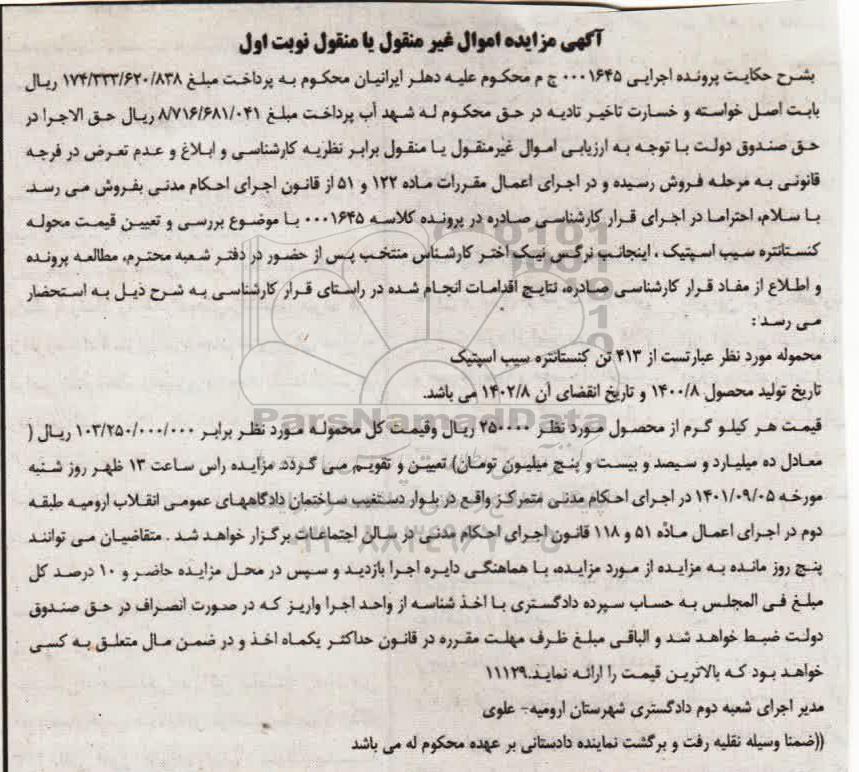 آگهی مزایده اموال غیر منقول یا منقول نوبت اول
بشرح حکایت پرونده اجرایی ۰۰۰۱۶۴۵ ج م محکوم علیه دهلر ایرانیان محکوم به پرداخت مبلغ ۱۷۴/۳۳۳/۶۲۰/۸۳۸ ریال
بابت اصل خواسته و خسارت تاخیر تادیه در حق محکوم له شهد آب پرداخت مبلغ ۸/۷۱۶/۶۸۱/۰۴۱ ریال حق الاجرا در
حق صندوق دولت با توجه به ارزیابی اموال غیرمنقول یا منقول برابر نظریه کارشناسی و ابلاغ و عدم تعرض در فرجه
قانونی به مرحله فروش رسیده و در اجرای اعمال مقررات ماده ۱۲۲ و ۵۱ از قانون اجرای احکام مدنی بفروش می رسد.
با سلام، احتراما در اجرای قرار کارشناسی صادره در پرونده کلاسه ۰۰۰۱۶۴۵ با موضوع بررسی و تعیین قیمت محوله
کنستانتره سیب اسپتیک ، اینجانب نرگس نیک اختر کارشناس منتخب پس از حضور در دفتر شعبه محترم، مطالعه پرونده
و اطلاع از مفاد قرار کارشناسی صادره، نتایج اقدامات انجام شده در راستای قرار کارشناسی به شرح ذیل به استحضار
می رسد :
محموله مورد نظر عبارتست از ۴۱۳ تن کنستانتره سیب اسپتیک
تاریخ تولید محصول ۱۴۰۰/۸ و تاریخ انقضای آن ۱۴۰۲/۸ می باشد.
قیمت هر کیلو گرم از محصول مورد نظر ۲۵۰۰۰۰ ریال وقیمت کل محموله مورد نظر برابر ۱۰۳/۲۵۰/۰۰۰/۰۰۰ ریال (
معادل ده میلیارد و سیصد و بیست و پنج میلیون تومان) تعیین و تقویم می گردد. مزایده راس ساعت ۱۳ ظهر روز شنبه
مورخه ۱۴۰۱/۰۹/۰۵ در اجرای احکام مدنی متمرکز واقع در بلوار دستغیب ساختمان دادگاههای عمومی انقلاب ارومیه طبقه
دوم در اجرای اعمال ماده ۵۱ و ۱۱۸ قانون اجرای احکام مدنی در سالن اجتماعات برگزار خواهد شد . متقاضیان می توانند
پنج روز مانده به مزایده از مورد مزایده، با هماهنگی دایره اجرا بازدید و سپس در محل مزایده حاضر و ۱۰ درصد کل
مبلغ فی المجلس به حساب سپرده دادگستری با اخذ شناسه از واحد اجرا واریز که در صورت انصراف در حق صندوق
دولت ضبط خواهد شد و الباقی مبلغ ظرف مهلت مقرره در قانون حداکثر یکماه اخذ و در ضمن مال متعلق به کسی
خواهد بود که بالاترین قیمت را ارائه نماید.۱۱۱۲۹
مدیر اجرای شعبه دوم دادگستری شهرستان ارومیه- علوی
((ضمنا وسیله نقلیه رفت و برگشت نماینده دادستانی بر عهده محکوم له می باشد
ParsNamadData